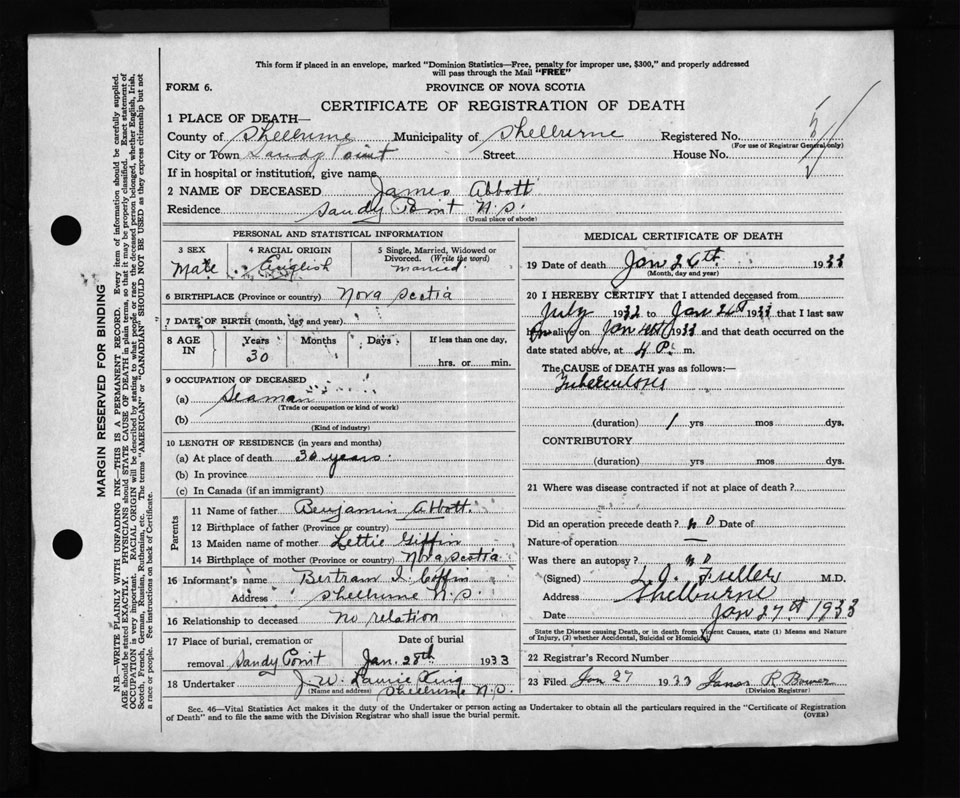 This form if placed in an envelope, marked "Dominion Statistics—Free, penalty for improper use, $300," and properly addressed
will pass through the Mail "FREE"
FORM 6.
PROVINCE OF NOVA SCOTIA
CERTIFICATE OF REGISTRATION OF DEATH
1 PLACE OF DEATH—
County of Shelburne Municipality of Shelburne Registered No.
(For use of Registrar General only)
City or Town Sandy Point Street House No.
If in hospital or institution, give name
2 NAME OF DECEASED James Abbott
Residence Sandy Point N.S.
(Usual place of abode)
PERSONAL AND STATISTICAL INFORMATION
3 SEX
Male
4 RACIAL ORIGIN
English
5 Single, Married, Widowed or
Divorced. (Write the word)
married.
6 BIRTHPLACE (Province or country) Nova Scotia
7 DATE OF BIRTH (month, day and year)
8 AGE
IN
Years
30
Months
Days
If less than one day,
hrs. or min.
9 OCCUPATION OF DECEASED
(a) Seaman
(Trade or occupation or kind of work)
(b)
(Kind of industry)
10 LENGTH OF RESIDENCE (in years and months)
(a) At place of death 30 years.
(b) In province
(c) In Canada (if an immigrant)
Parents
11 Name of father Benjamin Abbott.
12 Birthplace of father (Province or country)
13 Maiden name of mother Lettie Giffin
14 Birthplace of mother (Province or country) Nova Scotia
16 Informant's name Bertram Coffin
Address Shelburne N.S.
16 Relationship to deceased no relation
17 Place of burial, cremation or
removal Sandy Point
Date of burial
Jan. 28th 1933
18 Undertaker J. W. King
(Name and address) Shelburne N.S.
MEDICAL CERTIFICATE OF DEATH
19 Date of death Jan 26th. 1933
(Month, day and year)
20 I HEREBY CERTIFY that I attended deceased from
July 1932 to Jan 1933 that I last saw
h alive on Jan 1933 and that death occurred on the
date stated above, at 4 P. m.
The CAUSE OF DEATH was as follows:—
Tuberculosis
(duration) 1 yrs mos dys.
CONTRIBUTORY
(duration) yrs mos dys.
21 Where was disease contracted if not at place of death?
Did an operation precede death? no Date of
Nature of operation —
Was there an autopsy? no
(Signed) L.O. Fuller M.D.
Address Shelburne
Date Jan 27th 1933
State the Disease causing Death, or in death from Violent Causes, state (1) Means and Nature
of Injury, (2) whether Accidental, Suicidal or Homicidal.
22 Registrar's Record Number
23 Filed Jan 27 1933 R Bower
(Division Registrar)
Sec. 46—Vital Statistics Act makes it the duty of the Undertaker or person acting as Undertaker to obtain all the particulars required in the "Certificate of Registration
of Death" and to file the same with the Division Registrar who shall issue the burial permit.
(OVER)
MARGIN RESERVED FOR BINDING
N.B.—WRITE PLAINLY WITH UNFADING INK—THIS IS A PERMANENT RECORD. Every item of information should be carefully supplied.
AGE should be stated EXACTLY. PHYSICIANS should STATE CAUSE OF DEATH in plain terms, so that it may be properly classified. Exact statement of
OCCUPATION is very important. RACIAL ORIGIN will be described by stating to what people or race the deceased person belonged, whether English, Irish,
Scotch, French, German, Russian, Ruthenian, etc. The terms "AMERICAN" or "CANADIAN" SHOULD NOT BE USED as they express citizenship but not
a race or people. See instructions on back of Certificate.